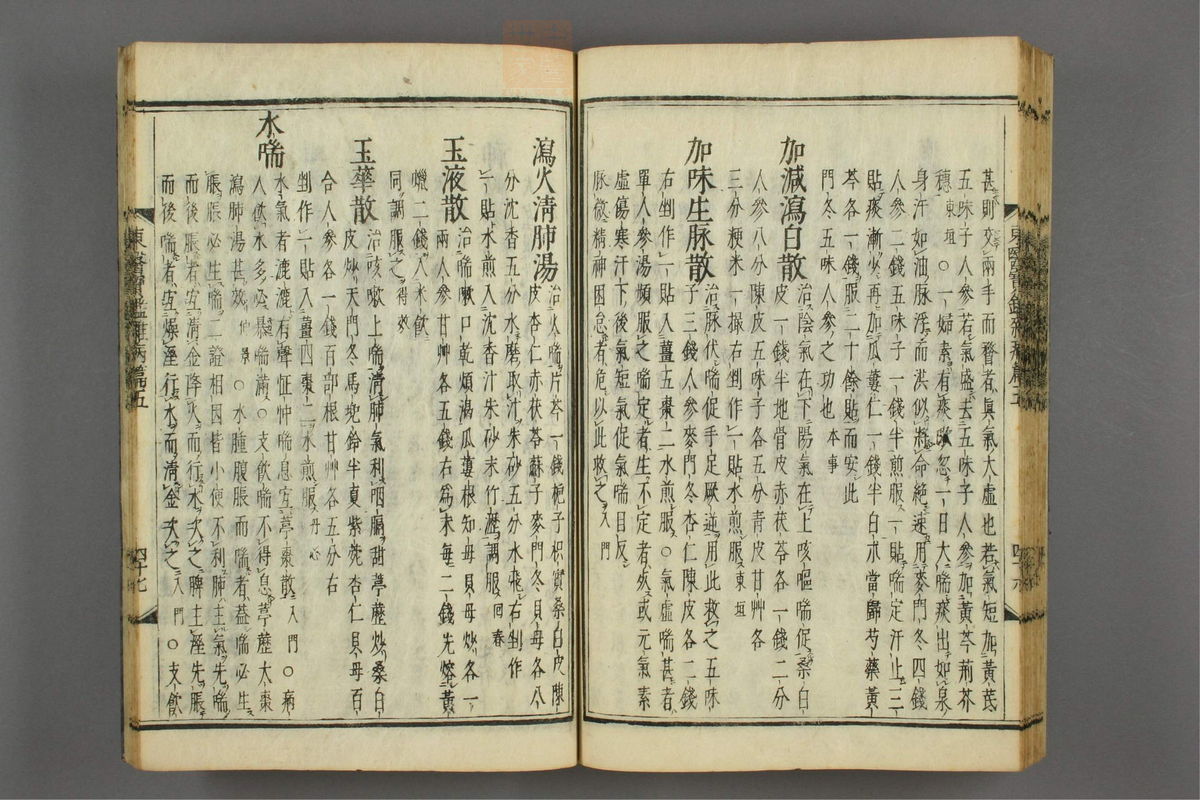 甚則交兩手而瞀者眞氣大虛也若氣短加黃芪
五味子人參若氣盛去五味子人參加黃芩荊芥
穗東垣○一婦素有痰嗽忽一日大喘痰出如泉
身汗如油脉浮而洪似將命絕速用麥門冬四錢
人參二錢五味子一錢半煎服一貼喘定汗止三
貼痰漸少再加瓜蔞仁一錢半白朮當歸芍藥黃
芩各一錢服二十餘貼而安此
門冬五味人參之功也本事
加減瀉白散治陰氣在下陽氣在上咳嘔喘促桑白
皮一錢半地骨皮赤茯苓各一錢二分
人參八分陳皮五味子各五分青皮甘艸各
三分粳米一撮右剉作一貼水煎服東垣
加味生脉散治脉伏喘促手足厥逆用此救之五味
子三錢人參麥門冬杏仁陳皮各二錢
右剉作一貼入薑五棗二水煎服○氣虛喘甚者
單人參湯頻服之喘定者生不定者死或元氣素
虛傷寒汗下後氣短氣促氣喘目反
脉微精神困怠者危以此救之入門
瀉火淸肺湯治火喘片芩一錢梔子枳實桑白皮陳
皮杏仁赤茯苓蘇子麥門冬貝母各八
分沈香五分水磨取汁朱砂五分水飛右剉作
一貼水煎入沈香汁朱砂末竹瀝調服回春
玉液散治喘嗽口乾煩渴瓜蔞根知母貝母炒各一
兩人參甘艸各五錢右爲末每二錢先熔黃
蠟二錢入米飮
同調服之得效
玉華散治咳嗽上喘淸肺氣利咽膈甜葶藶炒桑白
皮炒天門冬馬兜鈴半夏紫菀杏仁貝母百
合人參各一錢百部根甘艸各五分右
剉作一貼入薑四棗二水煎服丹心
水喘
水氣者漉漉有聲怔忡喘息宜葶棗散入門○病
人飮水多必暴喘滿○支飮喘不得息葶藶大棗
瀉肺湯甚效仲景○水腫腹脹而喘者蓋喘必生
脹脹必生喘二證相因皆小便不利肺主氣先喘
而後脹者宜淸金降火而行水次之脾主溼先脹
而後喘者宜燥溼行水而淸金次之入門○支飮
東醫寶鑑雜病篇五
四十九